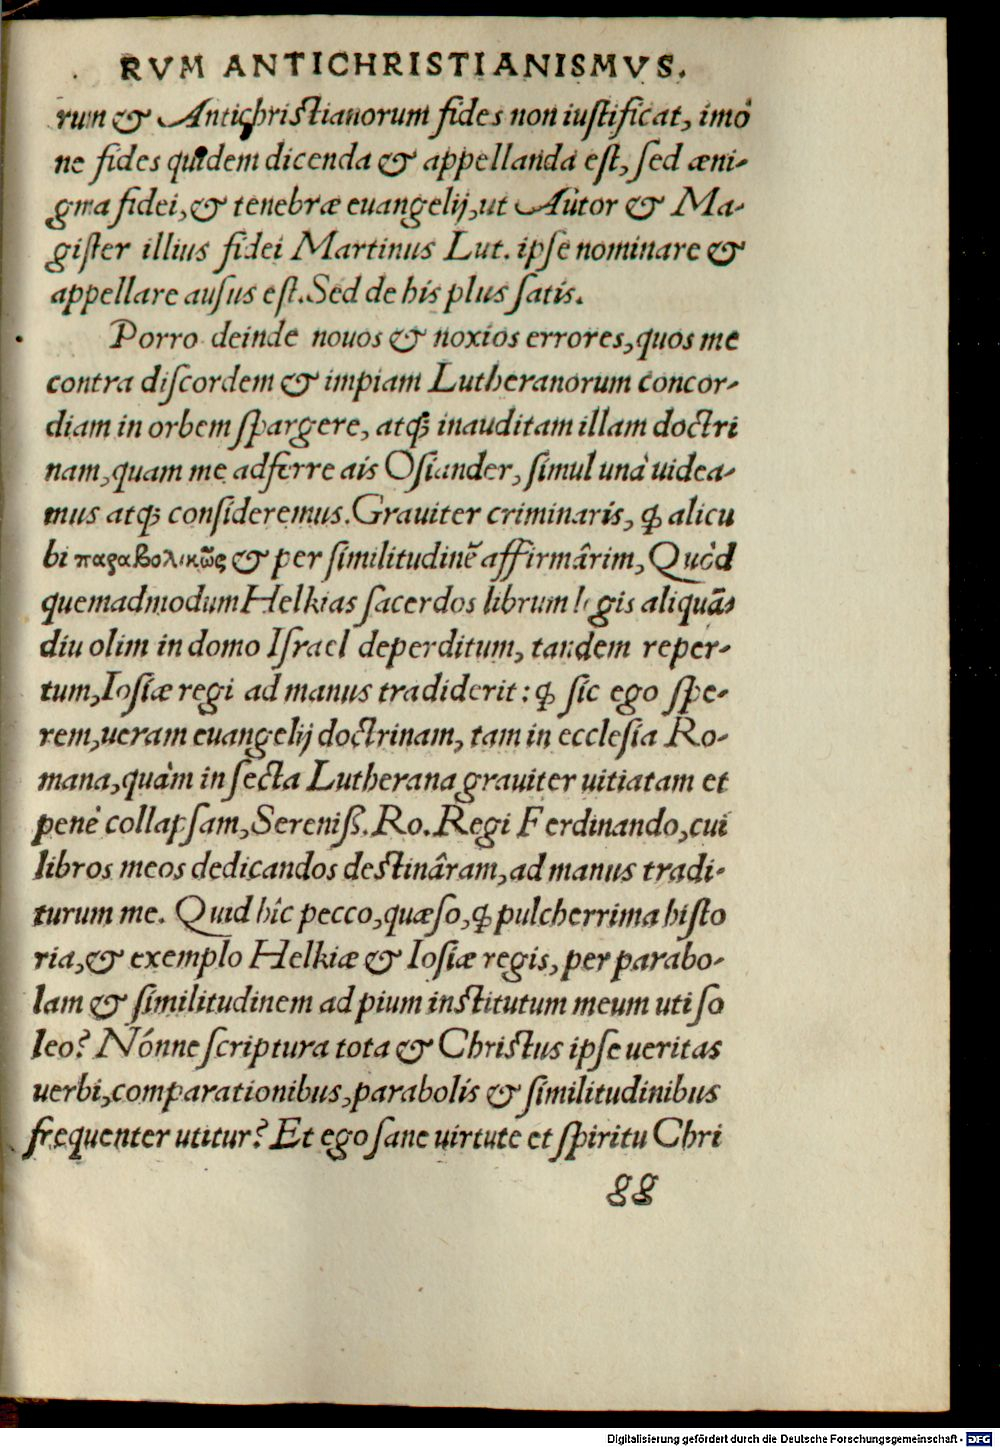 RVM ANTICHRISTIANISMVS.
rum & Antichristianorum fides non iustificat, imò
ne fides quidem dicenda & appellanda est, sed æni-
gma fidei, & tenebræ euangelij, ut Autor & Ma-
gister illius fidei Martinus Lut. ipse nominare &
appellare ausus est. Sed de his plus satis.
Porro deinde nouos & noxios errores, quos me
contra discordem & impiam Lutheranorum concor-
diam in orbem spargere, atq; inauditam illam doctri
nam, quam me adferre ais Osiander, simul unà uidea-
mus atq; consideremus. Grauiter criminaris, ꝙ alicu
bi παραβολικῶς & per similitudinẽ affirmârim, Quòd
quemadmodum Helkias sacerdos librum legis aliquã-
diu olim in domo Israel deperditum, tandem reper-
tum, Iosiæ regi ad manus tradiderit: ꝙ sic ego spe-
rem, ueram euangelij doctrinam, tam in ecclesia Ro-
mana, quàm in secta Lutherana grauiter uitiatam et
penè collapsam, Sereniß. Ro. Regi Ferdinando, cui
libros meos dedicandos destinâram, ad manus tradi-
turum me. Quid hîc pecco, quæso, ꝙ pulcherrima histo
ria, & exemplo Helkiæ & Iosiæ regis, per parabo-
lam & similitudinem ad pium institutum meum uti so
leo? Nónne scriptura tota & Christus ipse ueritas
uerbi, comparationibus, parabolis & similitudinibus
frequenter utitur? Et ego sane uirtute et spiritu Chri
gg
Digitalisierung gefördert durch die Deutsche Forschungsgemeinschaft - DFG